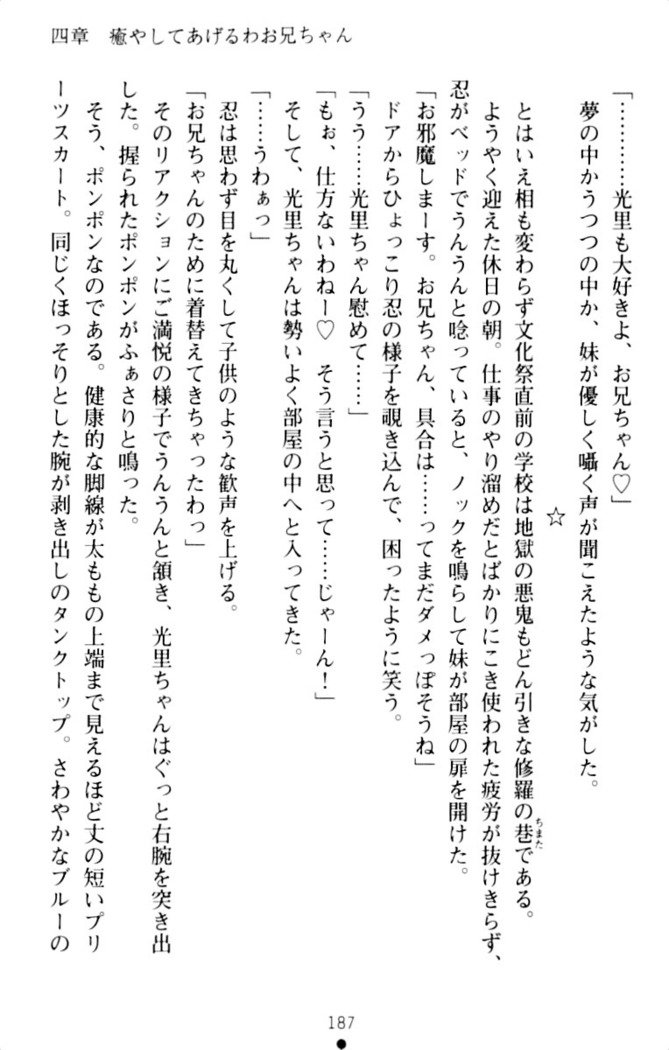 四章　癒やしてあげるわお兄ちゃん
「…………光里も大好きよ、お兄ちゃん♡」
夢の中かうつつの中か、妹が優しく囁く声が聞こえたような気がした。
☆
とはいえ相も変わらず文化祭直前の学校は地獄の悪鬼もどん引きな修羅の巷である。
ちまた
ようやく迎えた休日の朝。仕事のやり溜めだとばかりにこき使われた疲労が抜けきらず、
忍がベッドでうんうんと唸っていると、ノックを鳴らして妹が部屋の扉を開けた。
「お邪魔しまーす。お兄ちゃん、具合は……ってまだダメっぽそうね」
ドアからひょっこり忍の様子を覗き込んで、困ったように笑う。
「うう……光里ちゃん慰めて……」
「もぉ、仕方ないわねー♡　そう言うと思って……じゃーん！」
そして、光里ちゃんは勢いよく部屋の中へと入ってきた。
「……うわぁっ」
忍は思わず目を丸くして子供のような歓声を上げる。
「お兄ちゃんのために着替えてきちゃったわっ」
そのリアクションにご満悦の様子でうんうんと頷き、光里ちゃんはぐっと右腕を突き出
した。握られたポンポンがふぁさりと鳴った。
そう、ポンポンなのである。健康的な脚線が太ももの上端まで見えるほど丈の短いプリ
ーツスカート。同じくほっそりとした腕が剥き出しのタンクトップ。さわやかなブルーの
187